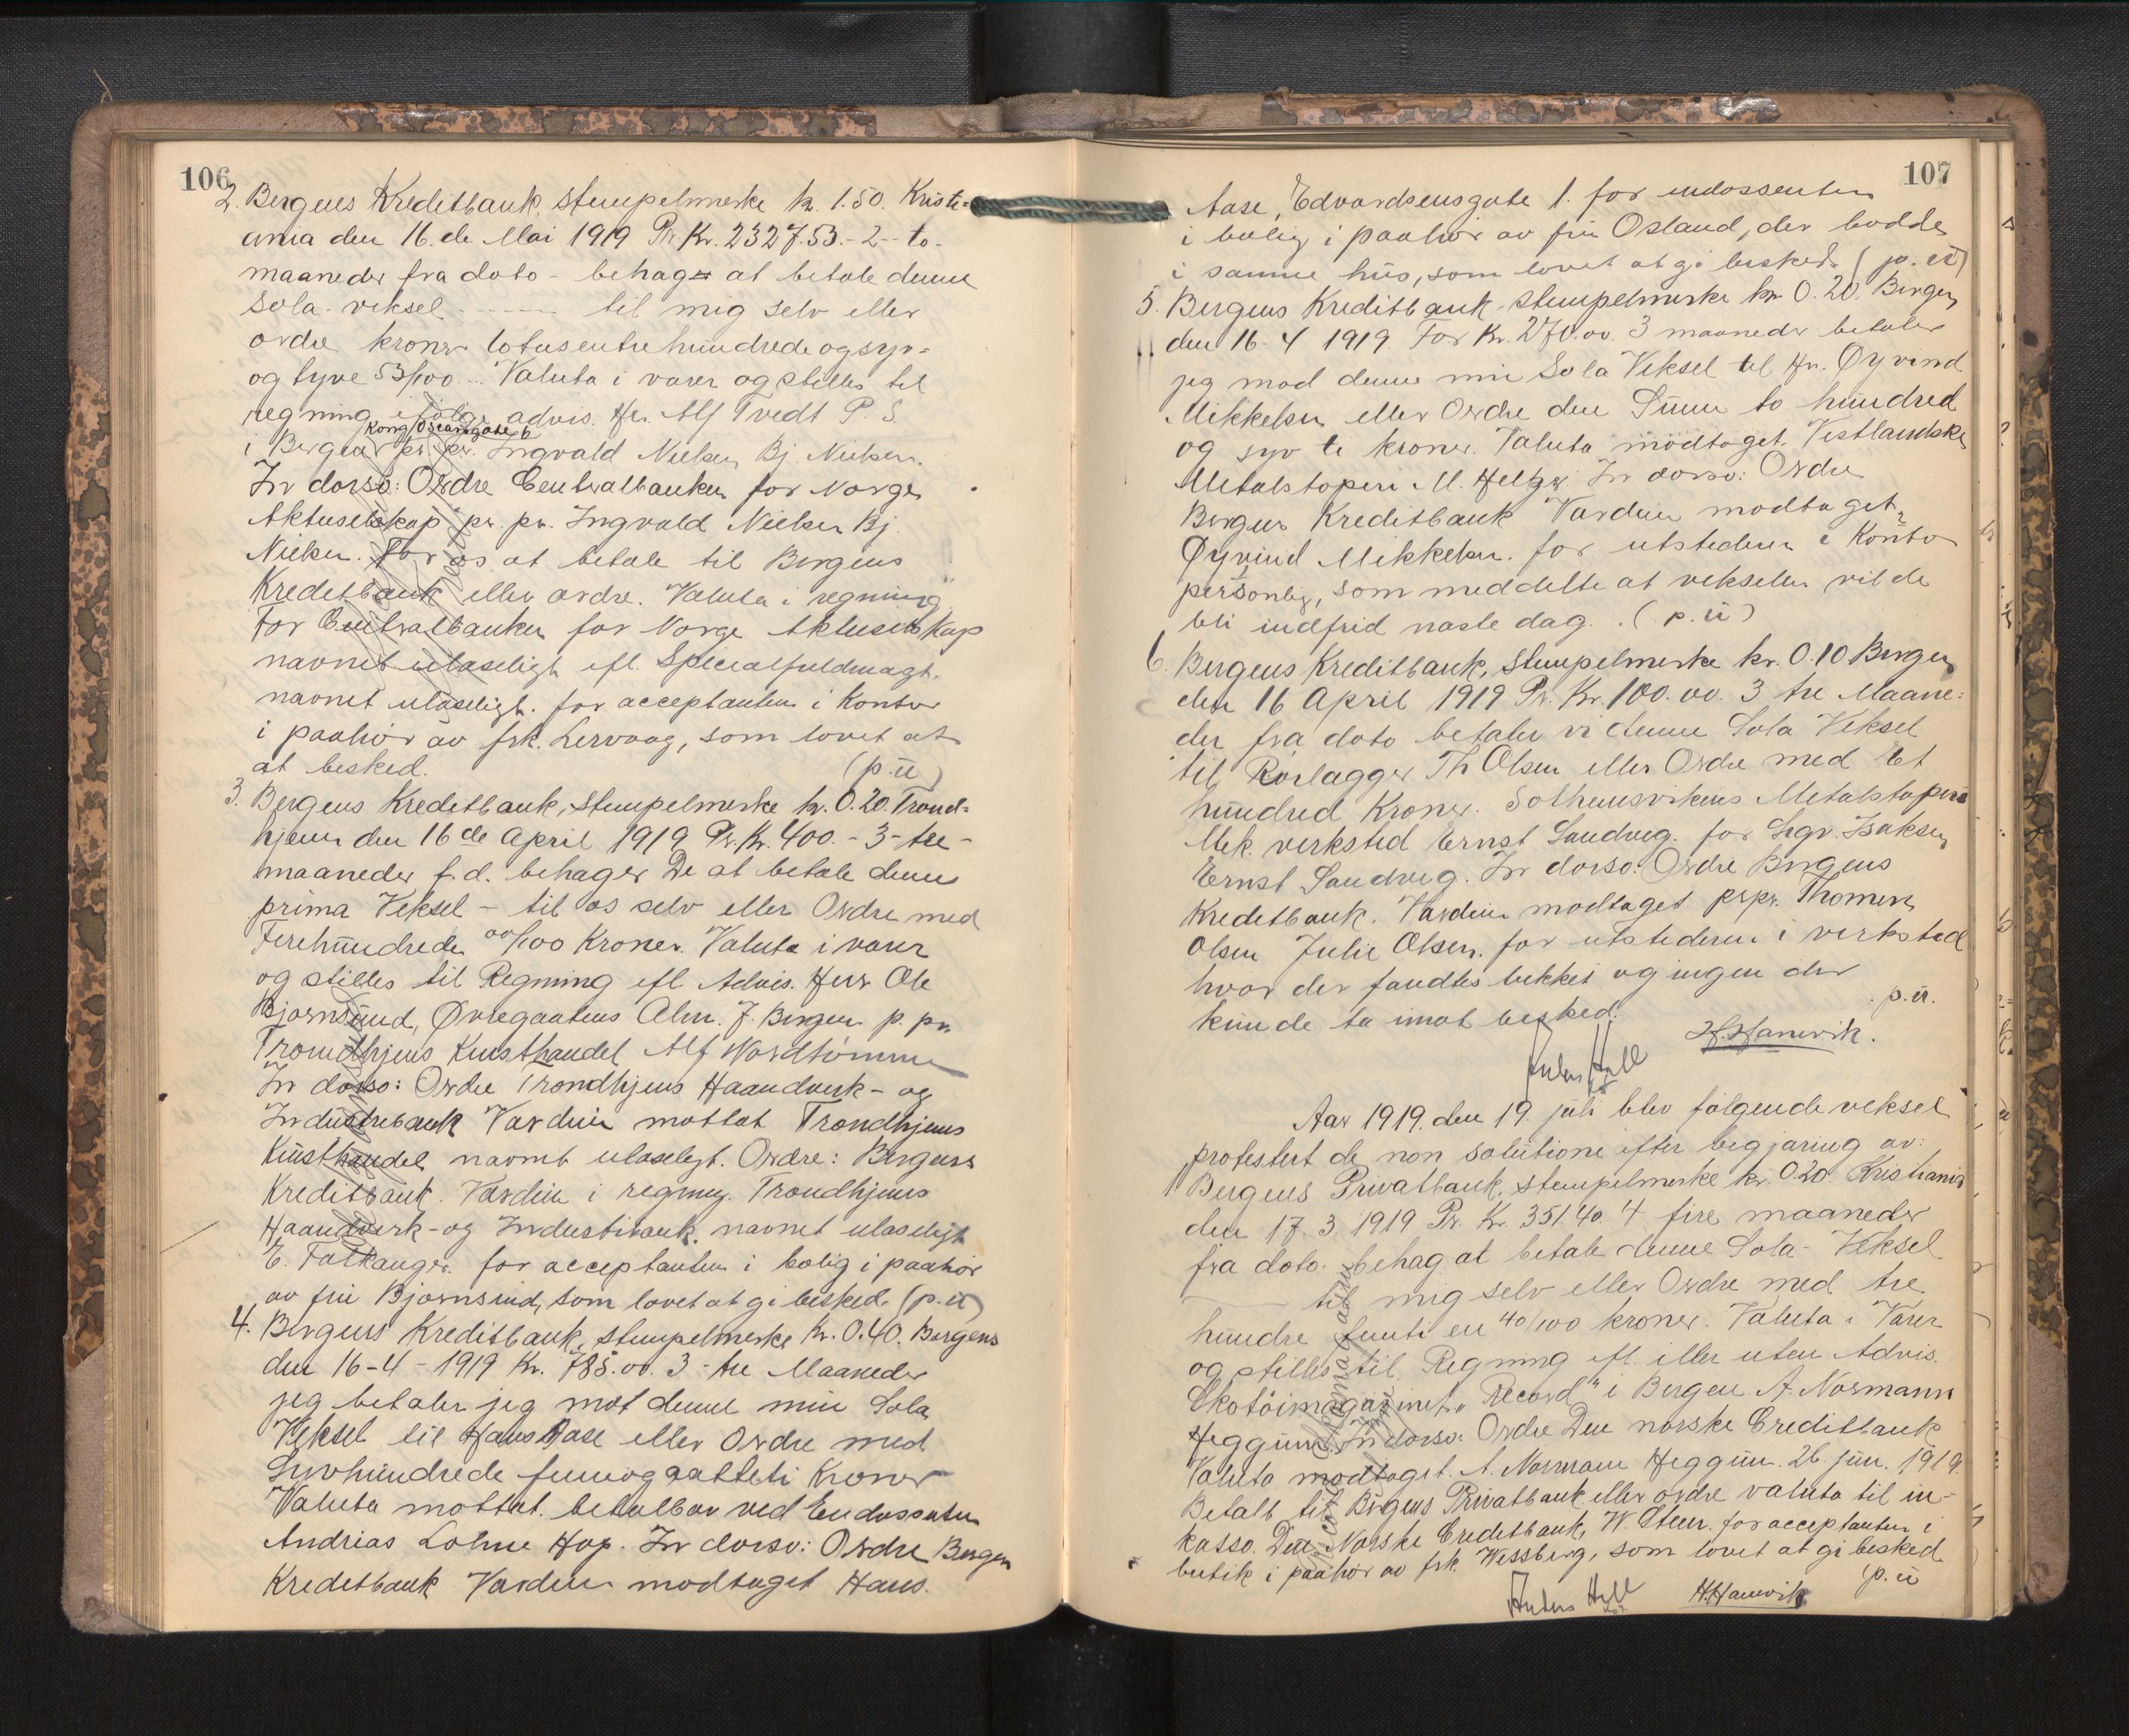 106
2. Bergens Kreditbank, stempelmerke kr. 1.50. Kristi=
ania den 16. de Mai 1919 Pr. Kr. 2327.53.-2-to-
maaneder fra dato - behager at betale denne
Sola-veksel ---- til mig selv eller
ordre kroner totusentrehundredeogsyv=
og tyve 53/100... Valuta i varer og stilles til
regning ifølge advis. Hr. Alf Tvedt P. S.
Kong Oscarsgate 6
i Bergen pr. pr. Ingvald Nielsen Bj. Nielsen.
In dorso: Ordre Centralbanken for Norge,
Aktieselskap pr. pr. Ingvald Nielsen Bj.
Nielsen. For os at betale til Bergens
Kreditbank eller ordre. Valuta i regning
For Centralbanken for Norge Aktieselskap
navnet ulæseligt efl. Specialfuldmagt.
navnet ulæseligt. for acceptanten i Kontor
i paahør av frk. Lervaag, som lovet at
at besked. (p.u)
3. Bergens Kreditbank, stempelmerke kr. 0.20. Trond=
hjem den 16 de April 1919 Pr. Kr. 400.-3-tre-
maaneder f.d. behager De at betale denne
prima Veksel - til os selv eller Ordre med
Firehundrede 00/100 Kroner. Valuta i varer
og stilles til Regning efl. Advis. Herr Ole
Bjørnsund, Øvregaatens Alm. 7. Bergen p. pr.
Trondhjems Kunsthandel Alf Nordtømme
In dorso: Ordre Trondhjems Haandverk- og
Industribank Værdien mottat Trondhjems
Kunsthandel navnet ulæseligt. Ordre: Bergens
Kreditbank. Værdien i regning. Trondhjems
Haandverk-og Industribank. navnet ulæseligt
E. Falkanger. for acceptanten i bolig i paahør
av fru Bjørnsund, som lovet at gi besked. (p.u)
4. Bergens Kreditbank, stempelmerke Kr. 0.40. Bergens
den 16-4-1919 Kr. 785.00. 3-tre Maaneder
jeg betaler jeg mot denne min Sola
Veksel til Hans Aase eller Ordre med
Syvhundrede femogaatteti Kroner
Valuta mottat. betalbar ved Endossenten
Andrias Lohne Hop. In dorso: Ordre Bergen
Kreditbank Værdien modtaget Hans.
107
Aase, Edvardsensgate 1. for endossenten
i bolig i paahør av fru Osland, der bodde
i samme hus, som lovet at gi besked. (p.u)
5. Bergens Kreditbank, stempelmerke kr. 0.20. Bergen
den 16-4 1919. For Kr. 270.00. 3 maaneder betaler
jeg mod denne min Sola Veksel til Hr. Øyvind
Mikkelsen eller Ordre den Sum to hundred
og syv ti kroner. Valuta modtaget. Vestlandske
Metalstøperi M. In dorso: Ordre
Bergens Kreditbank Værdien modtaget
Øyvind Mikkelsen. for utstederen i Kontor
personlig, som meddelte at vekselen vilde
bli indfrid næste dag. (p.u)
6. Bergens Kreditbank, stempelmerke kr. 0.10 Bergen
den 16 April 1919 Pr. Kr. 100.00. 3 tre Maane=
der fra dato betaler vi denne Sola Veksel
til Rørlægger Th Olsen eller Ordre med Et
hundred Kroner. Solheimsvikens Metalstøperi
Mek. verksted Ernst Sandvig. for Sigv. Isaksen
Ernst Sandvig. In dorso: Ordre Bergens
Kreditbank. Værdien modtaget prpr. Thomsen
Olsen Julie Olsen. for utstederen i verksted
hvor der fandtes lukket og ingen der
kunde ta imot besked. p.u.
H. Hamvik.
Aar 1919. den 19. juli blev følgende veksel
protestert de non solutione efter begjæring av:
1. Bergens Privatbank, stempelmerke kr. 0.20. Kristiania
den 17. 3. 1919 Pr. Kr. 351.40. 4 fire maaneder
fra dato. behag at betale denne Sola-Veksel
til mig selv eller Ordre med tre
hundre femti en 40/100 kroner. Valuta i Varer
og stilles til Regning efl. eller uten Advis.
Skotøimagasinet „Record" i Bergen. A. Normann
Heggum. In dorso: Ordre Den norske Creditbank
Valuta modtaget. A. Normann Heggum. 26. jun. 1919.
Betalt til Bergens Privatbank eller ordre valuta til in-
kasso. Den Norske Creditbank, W. Steen. for acceptanten i
butik i paahør av frk. Wessberg, som lovet at gi besked.
p.u
H. Hamvik